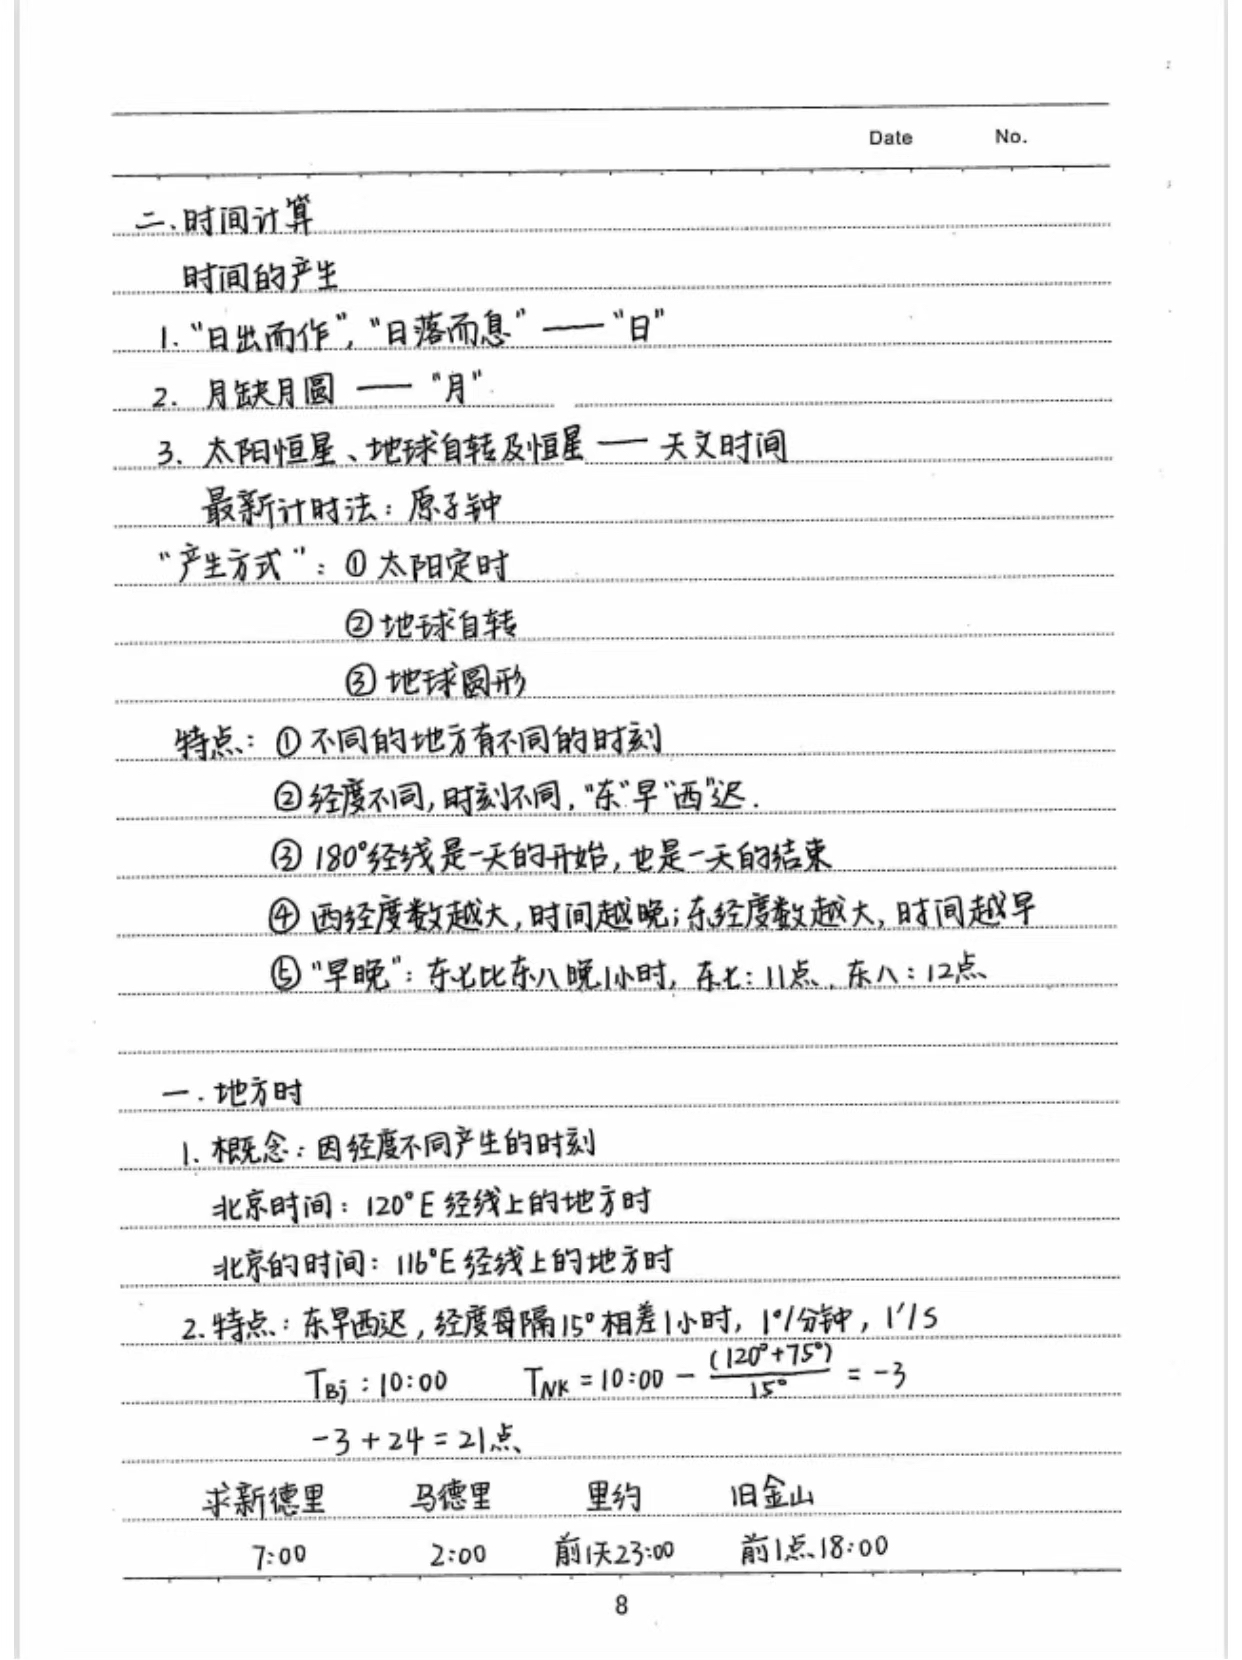 Date No.
二.时间计算
时间的产生
1."日出而作","日落而息" —— "日"
2. 月缺月圆 —— "月"
3. 太阳恒星、地球自转及恒星 —— 天文时间
最新计时法：原子钟
"产生方式"：①太阳定时
②地球自转
③地球圆形
特点：①不同的地方有不同的时刻
②经度不同,时刻不同,"东"早"西"迟.
③180°经线是一天的开始,也是一天的结束
④西经度数越大,时间越晚;东经度数越大,时间越早
⑤"早晚"：东七比东八晚1小时, 东七：11点、东八：12点
一.地方时
1.概念：因经度不同产生的时刻
北京时间：120°E经线上的地方时
北京的时间：116°E经线上的地方时
2.特点：东早西迟,经度每隔15°相差1小时, 1°/分钟, 1′/S
TBj：10:00 TNK = 10:00 - (120°+75°)/15° = -3
-3+24=21点
求新德里 马德里 里约 旧金山
7:00 2:00 前1天23:00 前1点18:00
8